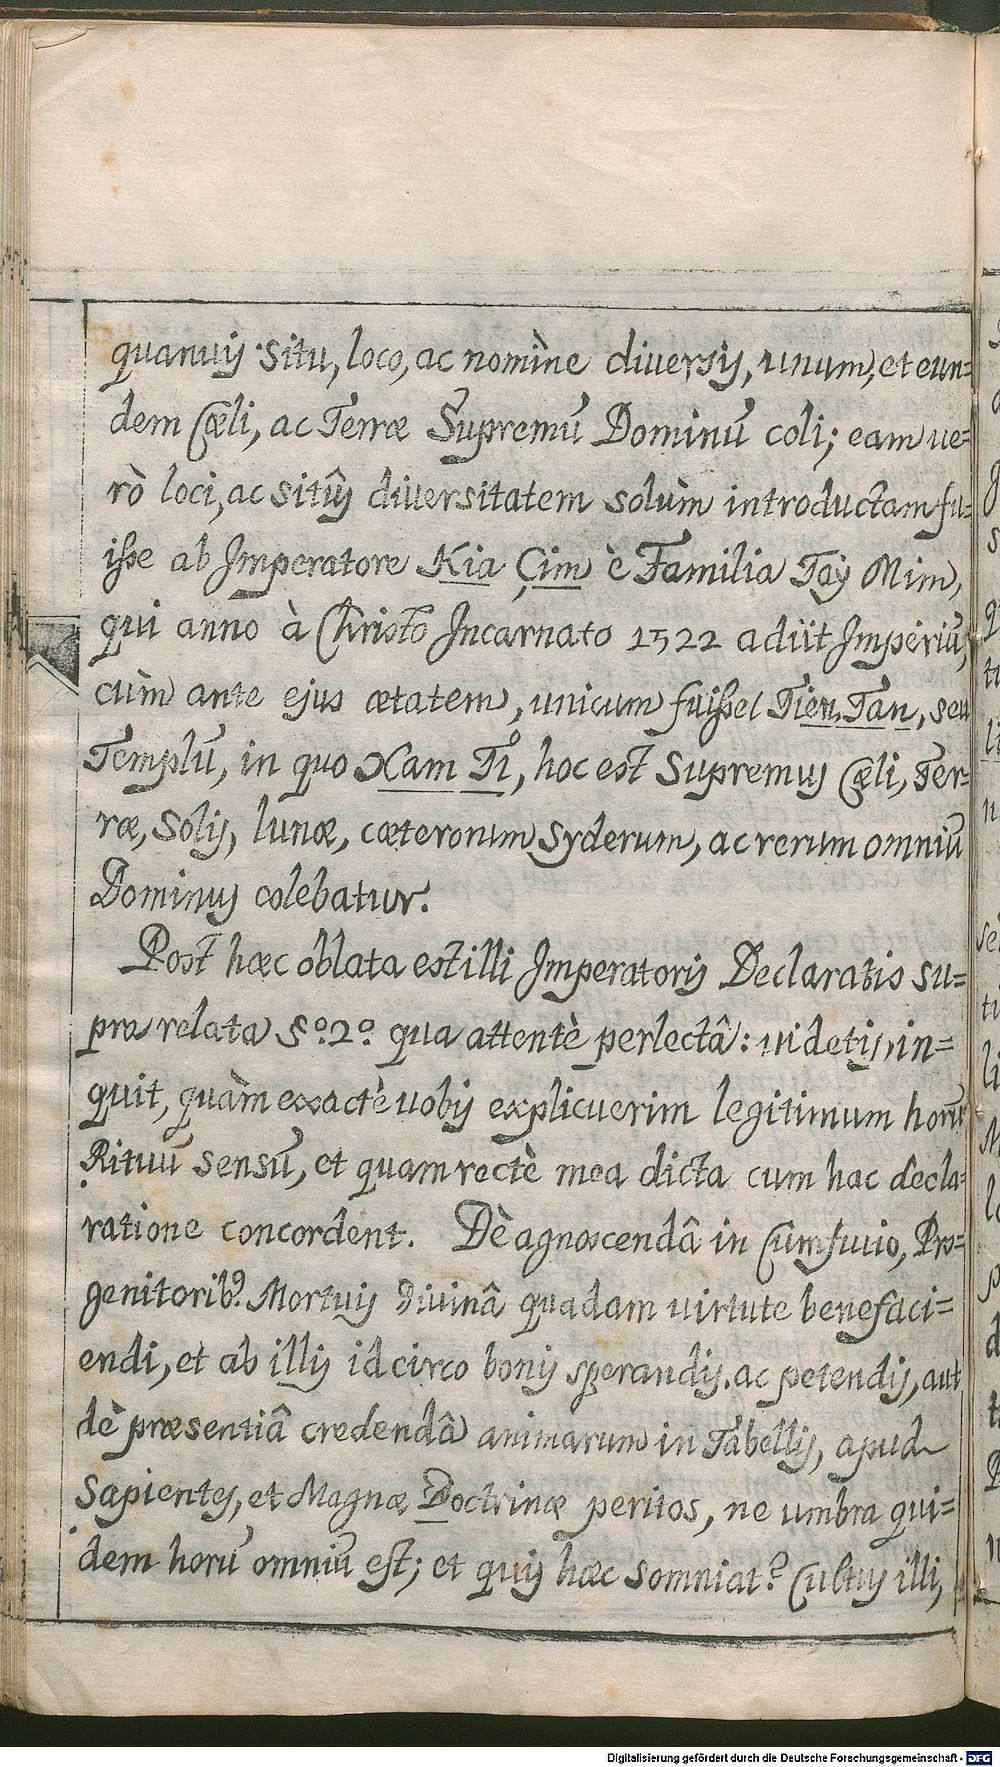 quanvis situ, loco, ac nomìne diversis, unum, et eun=
dem Cæli, ac Terræ Supremū Dominū coli; eam ve=
rò loci, ac sitûs diversitatem solùm introductam fu=
isse ab Imperatore Kia Çim è Familia Tay Mim,
qui anno à Christo Incarnato 1522 adiit Imperiū,
cùm ante ejus ætatem, unicum fuisset Tien Tan, seu
Templū, in quo Xam Ti, hoc est Supremus Cæli, Ter-
ræ, Solis, lunæ, cæterorum Syderum, ac rerum omniū
Dominus colebatur.
Post hæc oblata est illi Imperatoris Declaratio su=
pra relata §º 2º qua attentè perlectâ: videtis, in=
quit, quàm exactè vobis explicuerim legitimum horū
Rituū sensū, et quam rectè mea dicta cum hac decla=
ratione concordent. Dè agnoscendâ in Cumfucio, Pro=
genitorib9. Mortuis divinâ quadam virtute benefaci=
endi, et ab illis idcirco bonis sperandis, ac petendis, aut
dè præsentiâ credendâ animarum in Tabellis, apud
Sapientes, et Magnæ Doctrinæ peritos, ne umbra qui=
dem horū omniū est; et quis hæc somniat? Cultus illi,
Digitalisierung gefördert durch die Deutsche Forschungsgemeinschaft - DFG